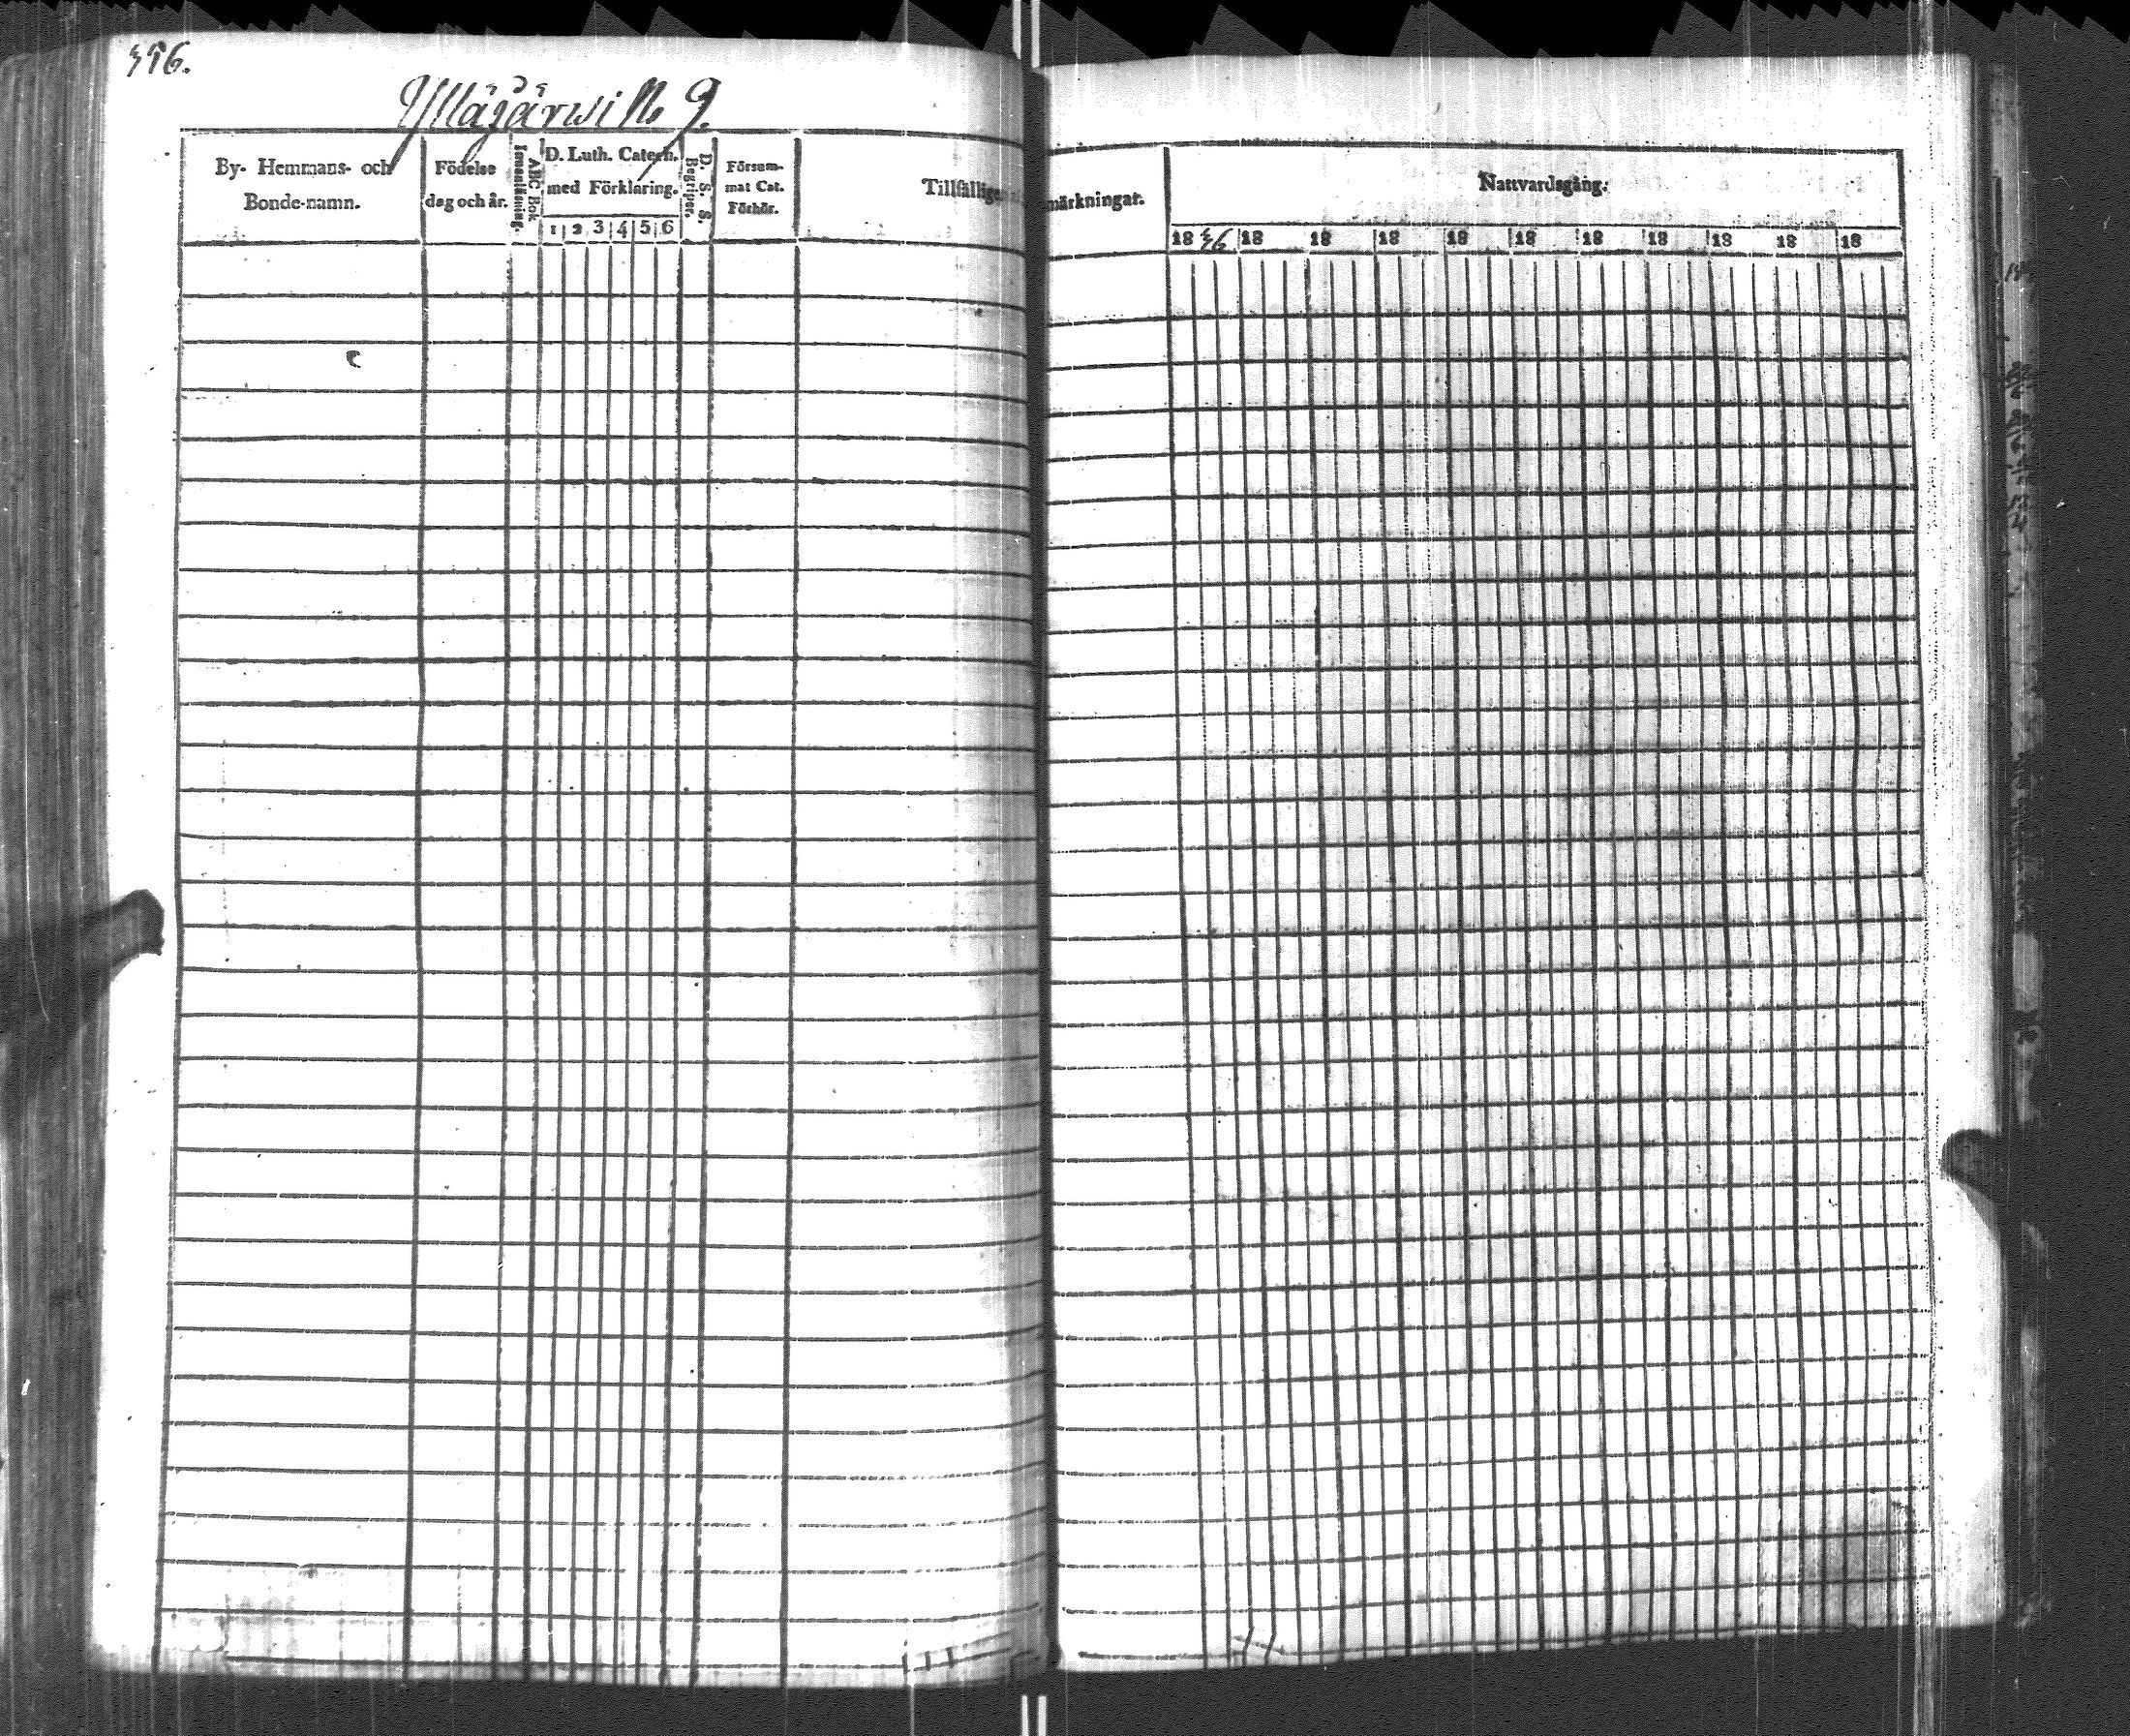 Yllägärwi No 9.
By- Hemmans- och
Bonde-namn.
Födelse
dag och år.
ABC Bok
Innanläsning.
D. Luth. Catech.
med Förklaring.
1 2 3 4 5 6
D. S. S.
Begriper.
Försum-
mat Cat.
Förhör.
Tillfällige märkningar.
Nattvardsgång.
18 18 18 18 18 18 18 18 18 18 18